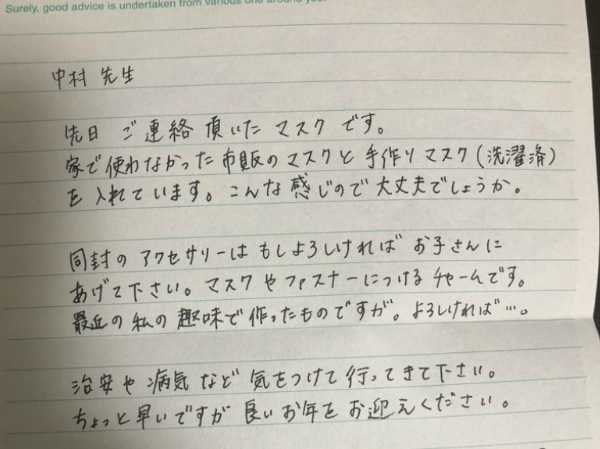 Surely, good advice is undertaken from various one around you
中村 先生
先日 ご連絡 頂いた マスク です。
家で使わなかった市販のマスクと手作りマスク(洗濯済)
を入れています。こんな感じので大丈夫でしょうか。
同封の アクセサリーは もしよろしければ お子さんに
あげて下さい。マスクやファスナーにつけるチャームです。
最近の私の趣味で作ったものですが。よろしければ…。
治安や病気など気をつけて行ってきて下さい。
ちょっと早いですが良いお年をお迎えください。